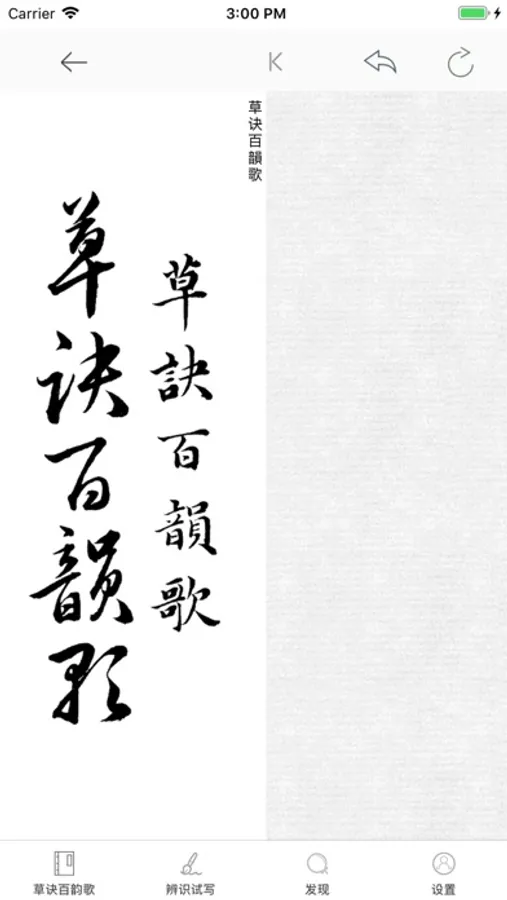 Carrier 3:00 PM
草诀百韻歌
草訣百韻歌
草诀百韻歌
草诀百韵歌
辨识试写
发现
设置